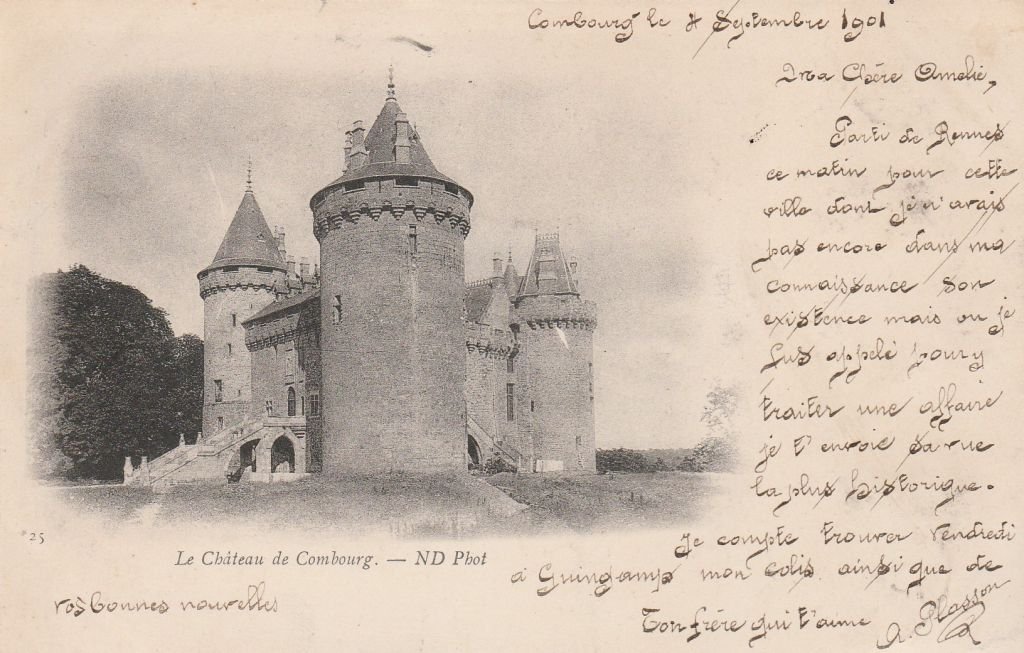 Combourg le 4 Septembre 1901
Ma Chère Amelie,
Parti de Rennes
ce matin pour cette
ville dont je n'avais
pas encore dans ma
connaissance son
existence mais ou je
fus appelé pour y
traiter une affaire
je t'envoie sa vue
la plus historique.
Je compte trouver Vendredi
a Guingamp mon colis ainsi que de
vos bonnes nouvelles
Ton frère qui t'aime
A. Plasson
25
Le Château de Combourg. — ND Phot